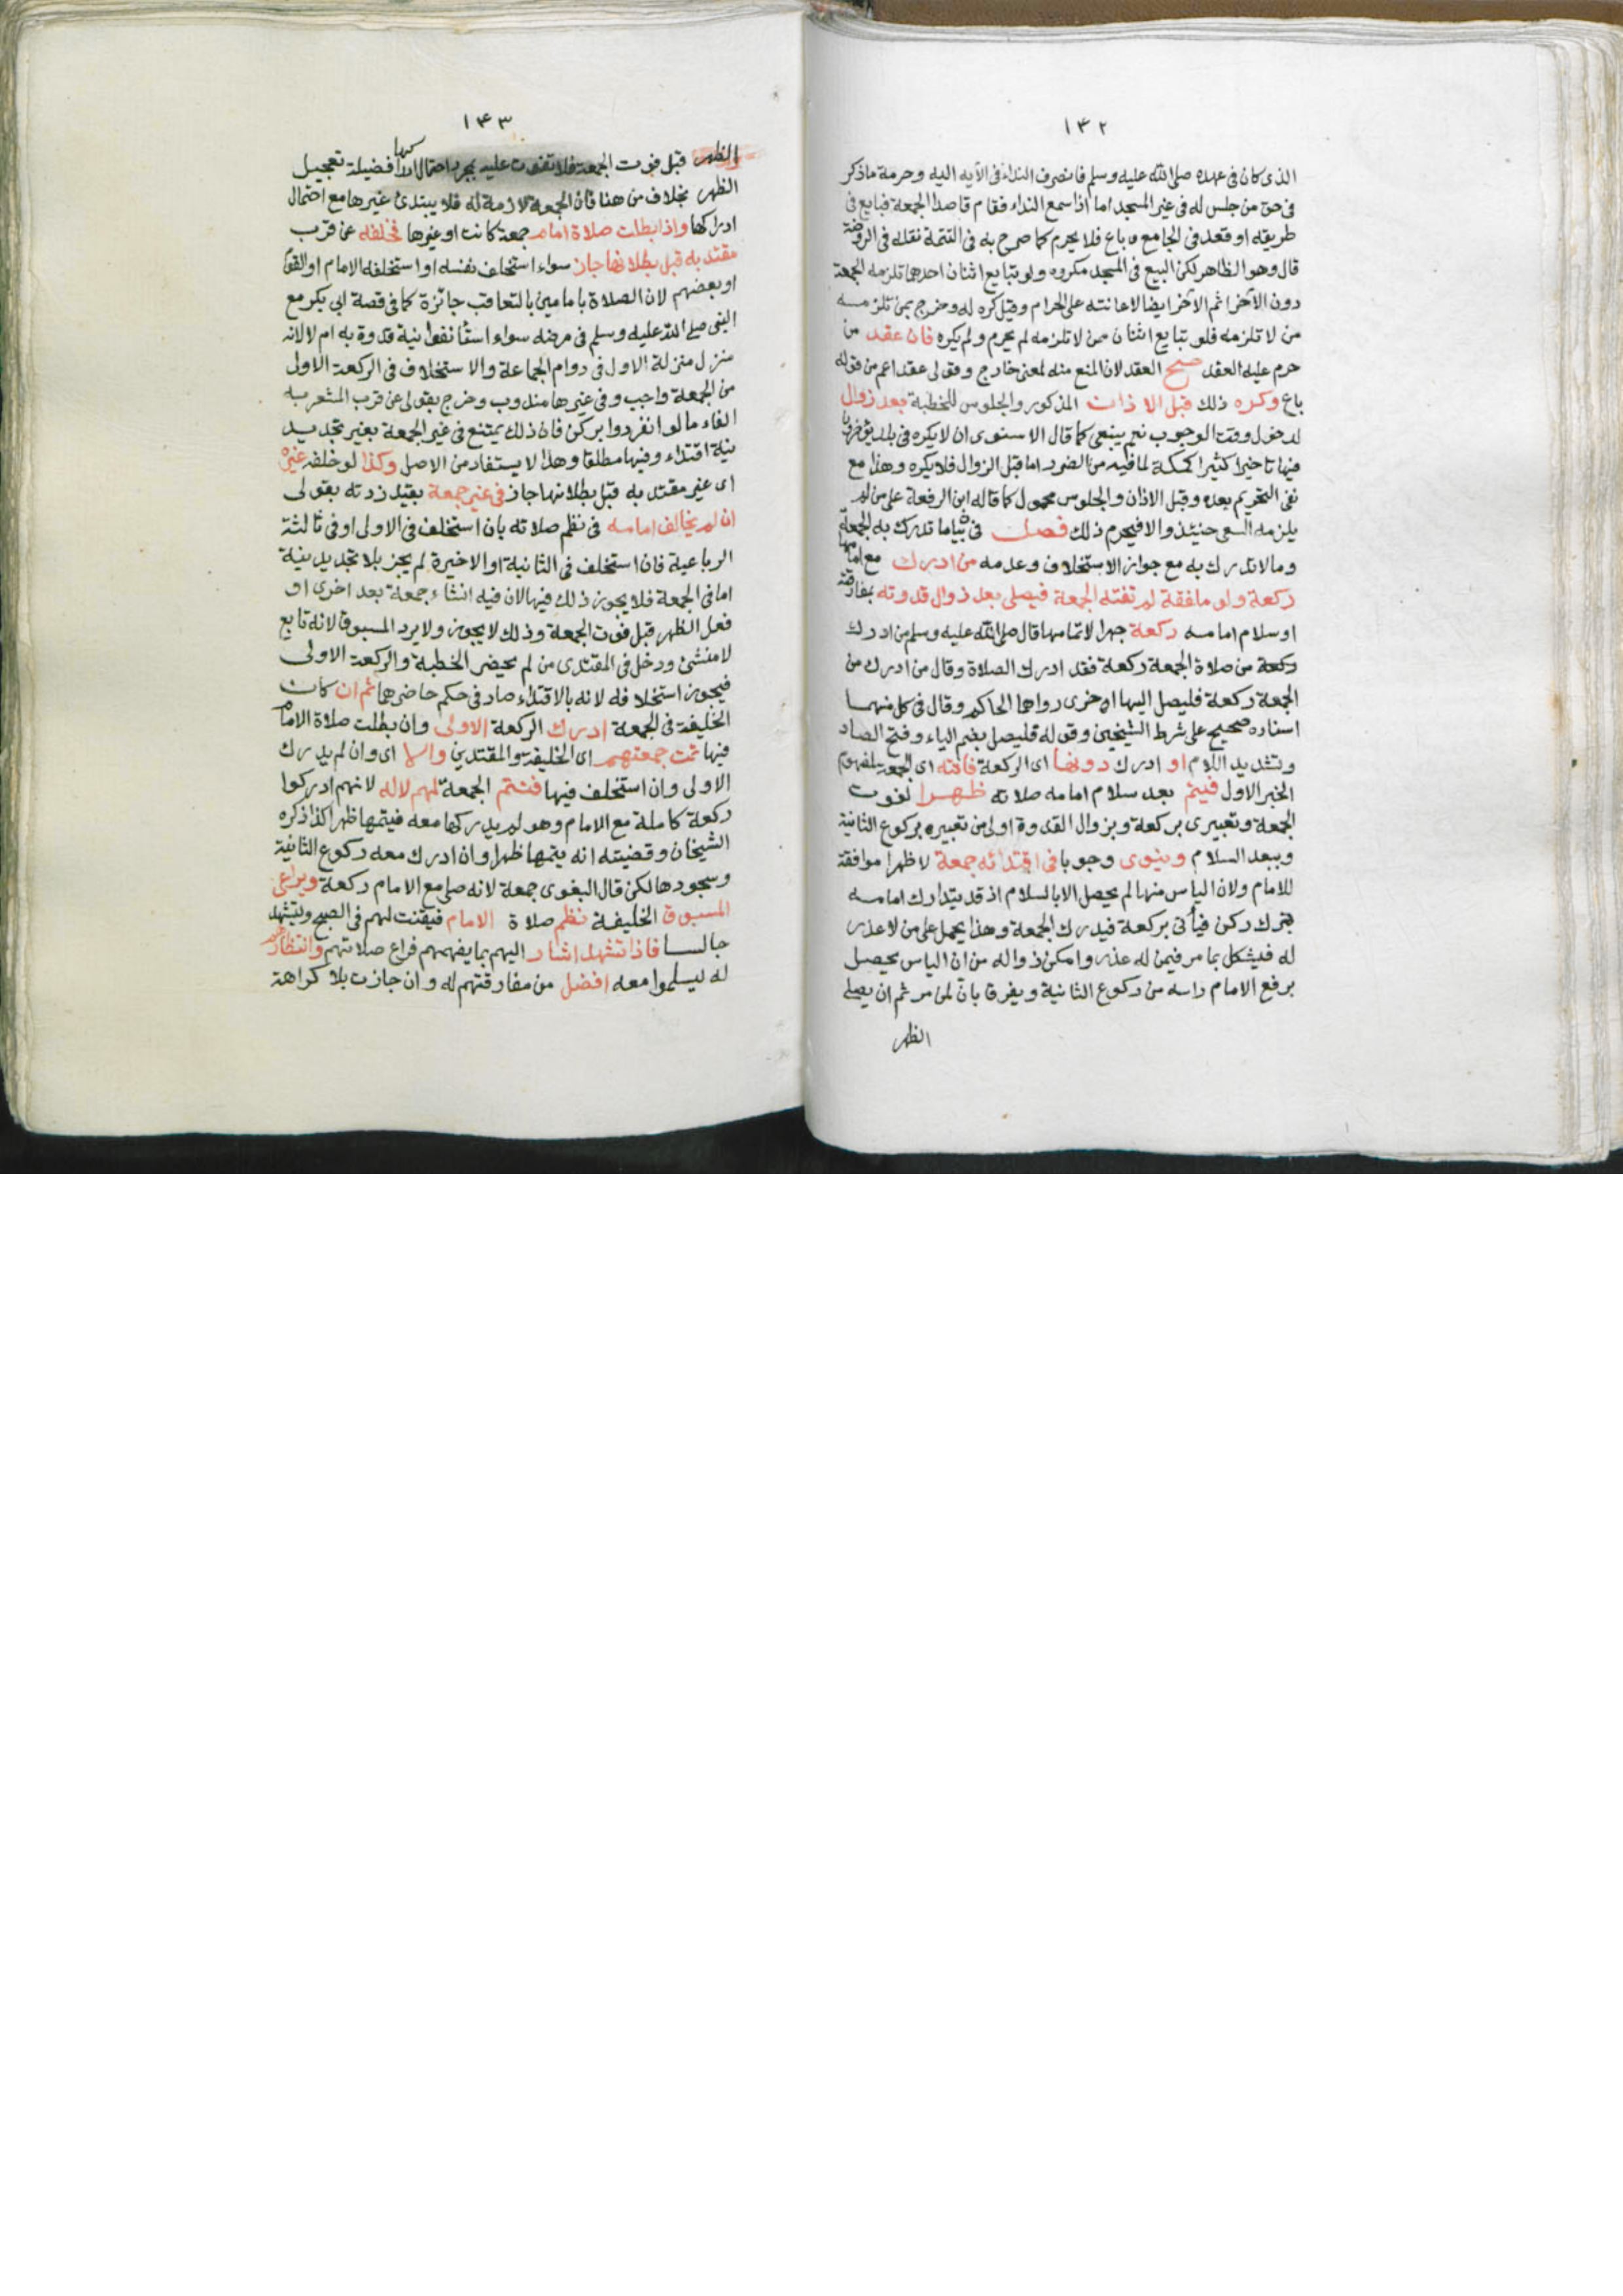 ١٤٢
الذى كان فى عهده صلى الله عليه وسلم فانصرف النداء فى الآيه اليه وحرمة ماذكر
فى حق من جلس له فى غير المسجد اما اذا سمع النداء فقام قاصدا الجمعة فبايع فى
طريقه او قعد فى الجامع وباع فلا يحرم كما صرح به فى التتمة نقله فى الروضة
قال وهو الظاهر لكن البيع فى المسجد مكروه ولو تبايع اثنان احدهما تلزمه الجمعة
دون الآخر اثم الآخر ايضا لاعانته على الحرام وقيل كره له وخرج بمن تلزمه
من لا تلزمه فلو تبايع اثنان ممن لا تلزمه لم يحرم ولم يكره فان عقد من
حرم عليه العقد صح العقد لان المنع منه لمعنى خارج وقولى عقد اعم من قوله
باع وكره ذلك قبل الاذان المذكور والجلوس للخطبة بعد زوال
لدخول وقت الوجوب نعم ينبغى كما قال الاسنوى ان لا يكره فى بلد يؤخرون
فيها تاخيرا كثيرا كمكة لما فيه من الضرر اما قبل الزوال فلا يكره وهذا مع
نفى التحريم بعده وقبل الاذان والجلوس محمول كما قاله ابن الرفعة على من لم
يلزمه السعى حينئذ والا فيحرم ذلك فصل فى بيان ما تدرك به الجمعة
وما لا تدرك به مع جواز الاستخلاف وعدمه من ادرك مع امامها
ركعة ولو ملفقة لم تفته الجمعة فيصلى بعد زوال قدوته بمفارقته
او سلام امامه ركعة جهرا لاتمامها قال صلى الله عليه وسلم من ادرك
ركعة من صلاة الجمعة ركعة فقد ادرك الصلاة وقال من ادرك من
الجمعة ركعة فليصل اليها اخرى رواهما الحاكم وقال فى كل منهما
اسناده صحيح على شرط الشيخين وقوله فليصل بضم الياء وفتح الصاد
وتشديد اللام او ادرك دونها اى الركعة فاتته اى الجمعة لمفهوم
الخبر الاول فيتم بعد سلام امامه صلاته ظهرا لفوت
الجمعة وتعبيرى بركعة وبزوال القدوة اولى من تعبيره بركوع الثانية
وببعد السلام وينوى وجوبا فى اقتدائه جمعة لا ظهرا موافقة
للامام ولان الياس منها لم يحصل الا بالسلام اذ قد يتدارك امامه
بترك ركن فيأتى بركعة فيدرك الجمعة وهذا يحمل على من لا عذر
له فيشكل بما مر فيمن له عذر وامكن زواله من ان الياس يحصل
برفع الامام راسه من ركوع الثانية ويفرق بان لمن مر ثم ان يصلى
الظهر
١٤٣
الظهر قبل فوت الجمعة فلا تفوت عليه بمجرد احتمال ادراكها فضيلة تعجيل
الظهر بخلاف من هنا فان الجمعة لازمة له فلا يبتدئ غيرها مع احتمال
ادراكها واذا بطلت صلاة امام جمعة كانت او غيرها فخلفه عن قرب
مقتد به قبل بطلانها جاز سواء استخلف نفسه او استخلفه الامام او القوم
او بعضهم لان الصلاة بامامين بالتعاقب جائزة كما فى قصة ابى بكر مع
النبى صلى الله عليه وسلم فى مرضه سواء استأنفوا نية قدوة به ام لا لانه
منزل منزلة الاول فى دوام الجماعة والاستخلاف فى الركعة الاولى
من الجمعة واجب وفى غيرها مندوب وخرج بقولى عن قرب المشعر به
الفاء ما لو انفردوا بركن فان ذلك يمتنع فى غير الجمعة بغير تجديد
نية اقتداء وفيها مطلقا وهذا لا يستفاد من الاصل وكذا لو خلفه غيره
اى غير مقتد به قبل بطلانها جاز فى غير جمعة بقيد زدته بقولى
ان لم يخالف امامه فى نظم صلاته بان استخلف فى الاولى او فى ثالثة
الرباعية فان استخلف فى الثانية او الاخيرة لم يجز بلا تجديد نية
اما فى الجمعة فلا يجوز ذلك فيها لان فيه انشاء جمعة بعد اخرى او
فعل الظهر قبل فوت الجمعة وذلك لا يجوز ولا يرد المسبوق لانه تابع
لا منشئ ودخل فى المقتدى من لم يحضر الخطبة والركعة الاولى
فيجوز استخلافه لانه بالاقتداء صار فى حكم حاضرهما ثم ان كان
الخليفة فى الجمعة ادرك الركعة الاولى وان بطلت صلاة الامام
فيها تمت جمعتهم اى الخليفة والمقتدين والا اى وان لم يدرك
الاولى وان استخلف فيها فتتم الجمعة لهم لا له لانهم ادركوا
ركعة كاملة مع الامام وهو لم يدركها معه فيتمها ظهرا كذا ذكره
الشيخان وقضيته انه يتمها ظهرا وان ادرك معه ركوع الثانية
وسجودها لكن قال البغوى جمعة لانه صلى مع الامام ركعة ويراعى
المسبوق الخليفة نظم صلاة الامام فيقنت لهم فى الصبح ويتشهد
جالسا فاذا تشهد اشار اليهم بما يفهمهم فراغ صلاتهم وانتظارهم
له ليسلموا معه افضل من مفارقتهم له وان جازت بلا كراهة